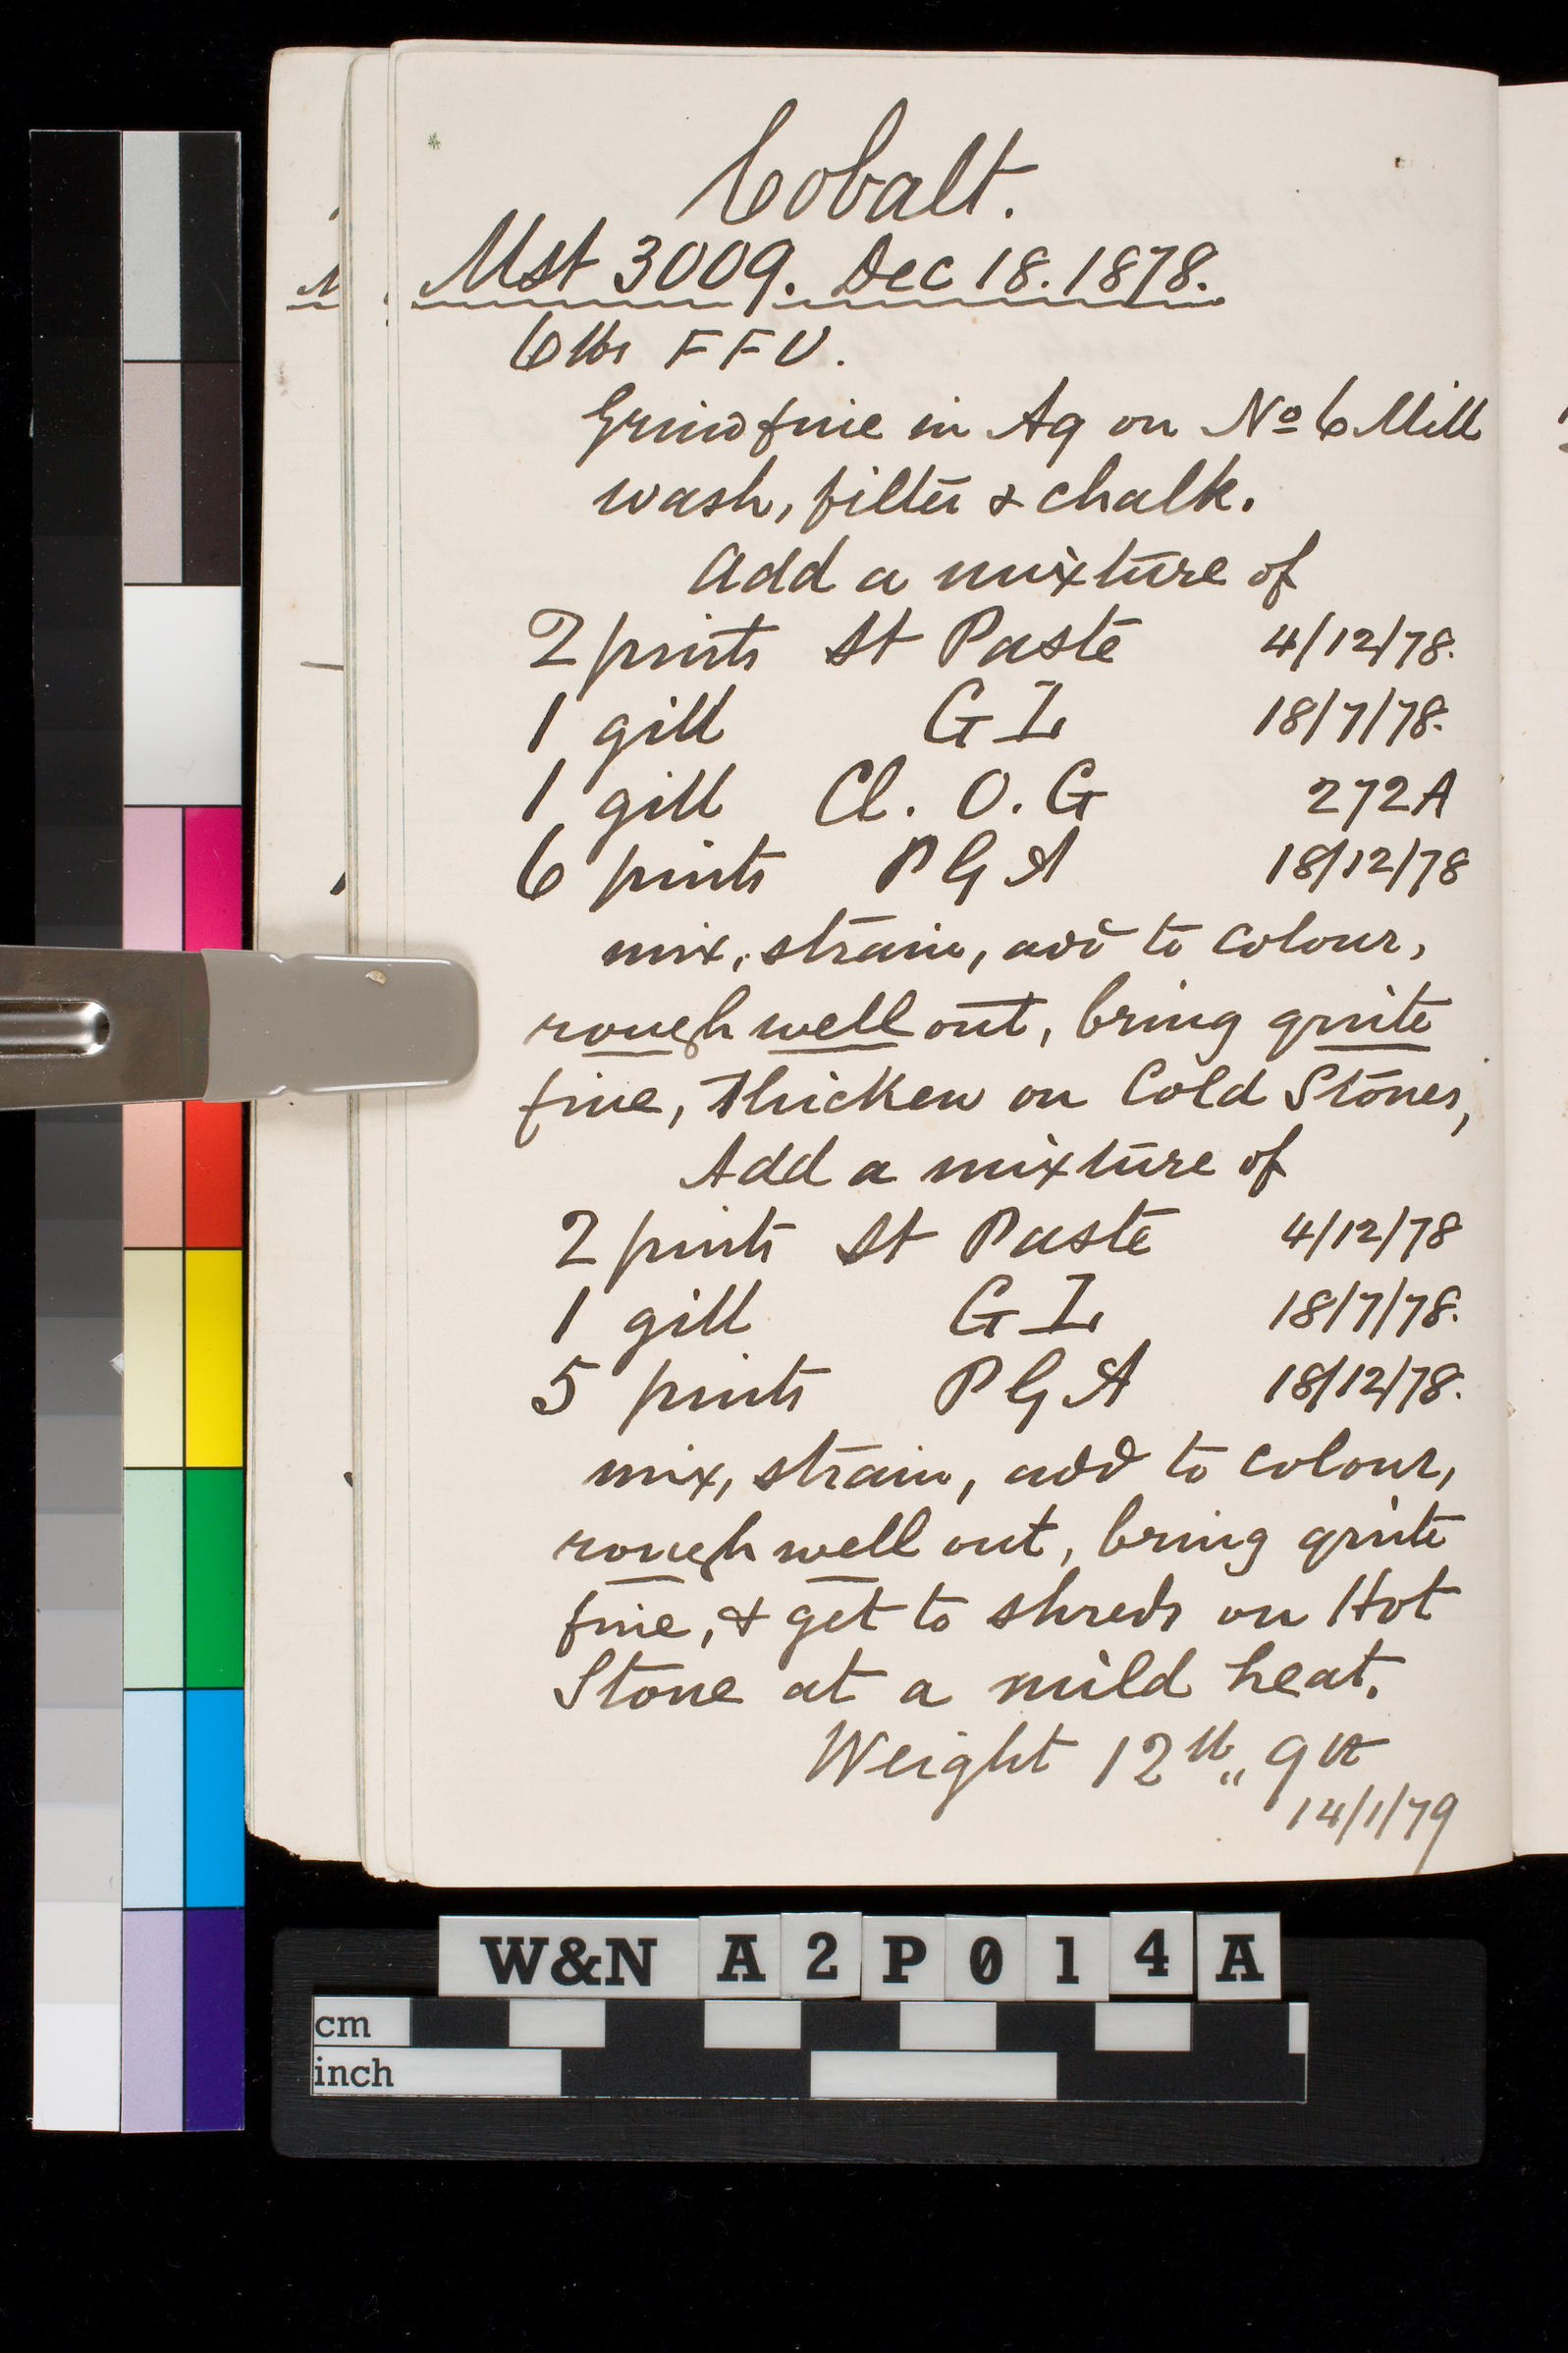 Cobalt.
Mst 3009. Dec 18. 1878.
6 lbs F F U.
Grind fine in Aq on No 6 Mill
wash, filter & chalk.
Add a mixture of
2 pints St Paste 4/12/78.
1 gill G I 18/7/78.
1 gill Cl. O. G 272A
6 pints P G A 18/12/78
mix, strain, add to colour,
rough well out, bring quite
fine, thicken on Cold Stones,
Add a mixture of
2 pints St Paste 4/12/78
1 gill G I 18/7/78.
5 pints P G A 18/12/78.
mix, strain, add to colour,
rough well out, bring quite
fine, & get to shreds on Hot
Stone at a mild heat.
Weight 12 lb,, 9
14/1/79
W&N A2P014A
cm
inch